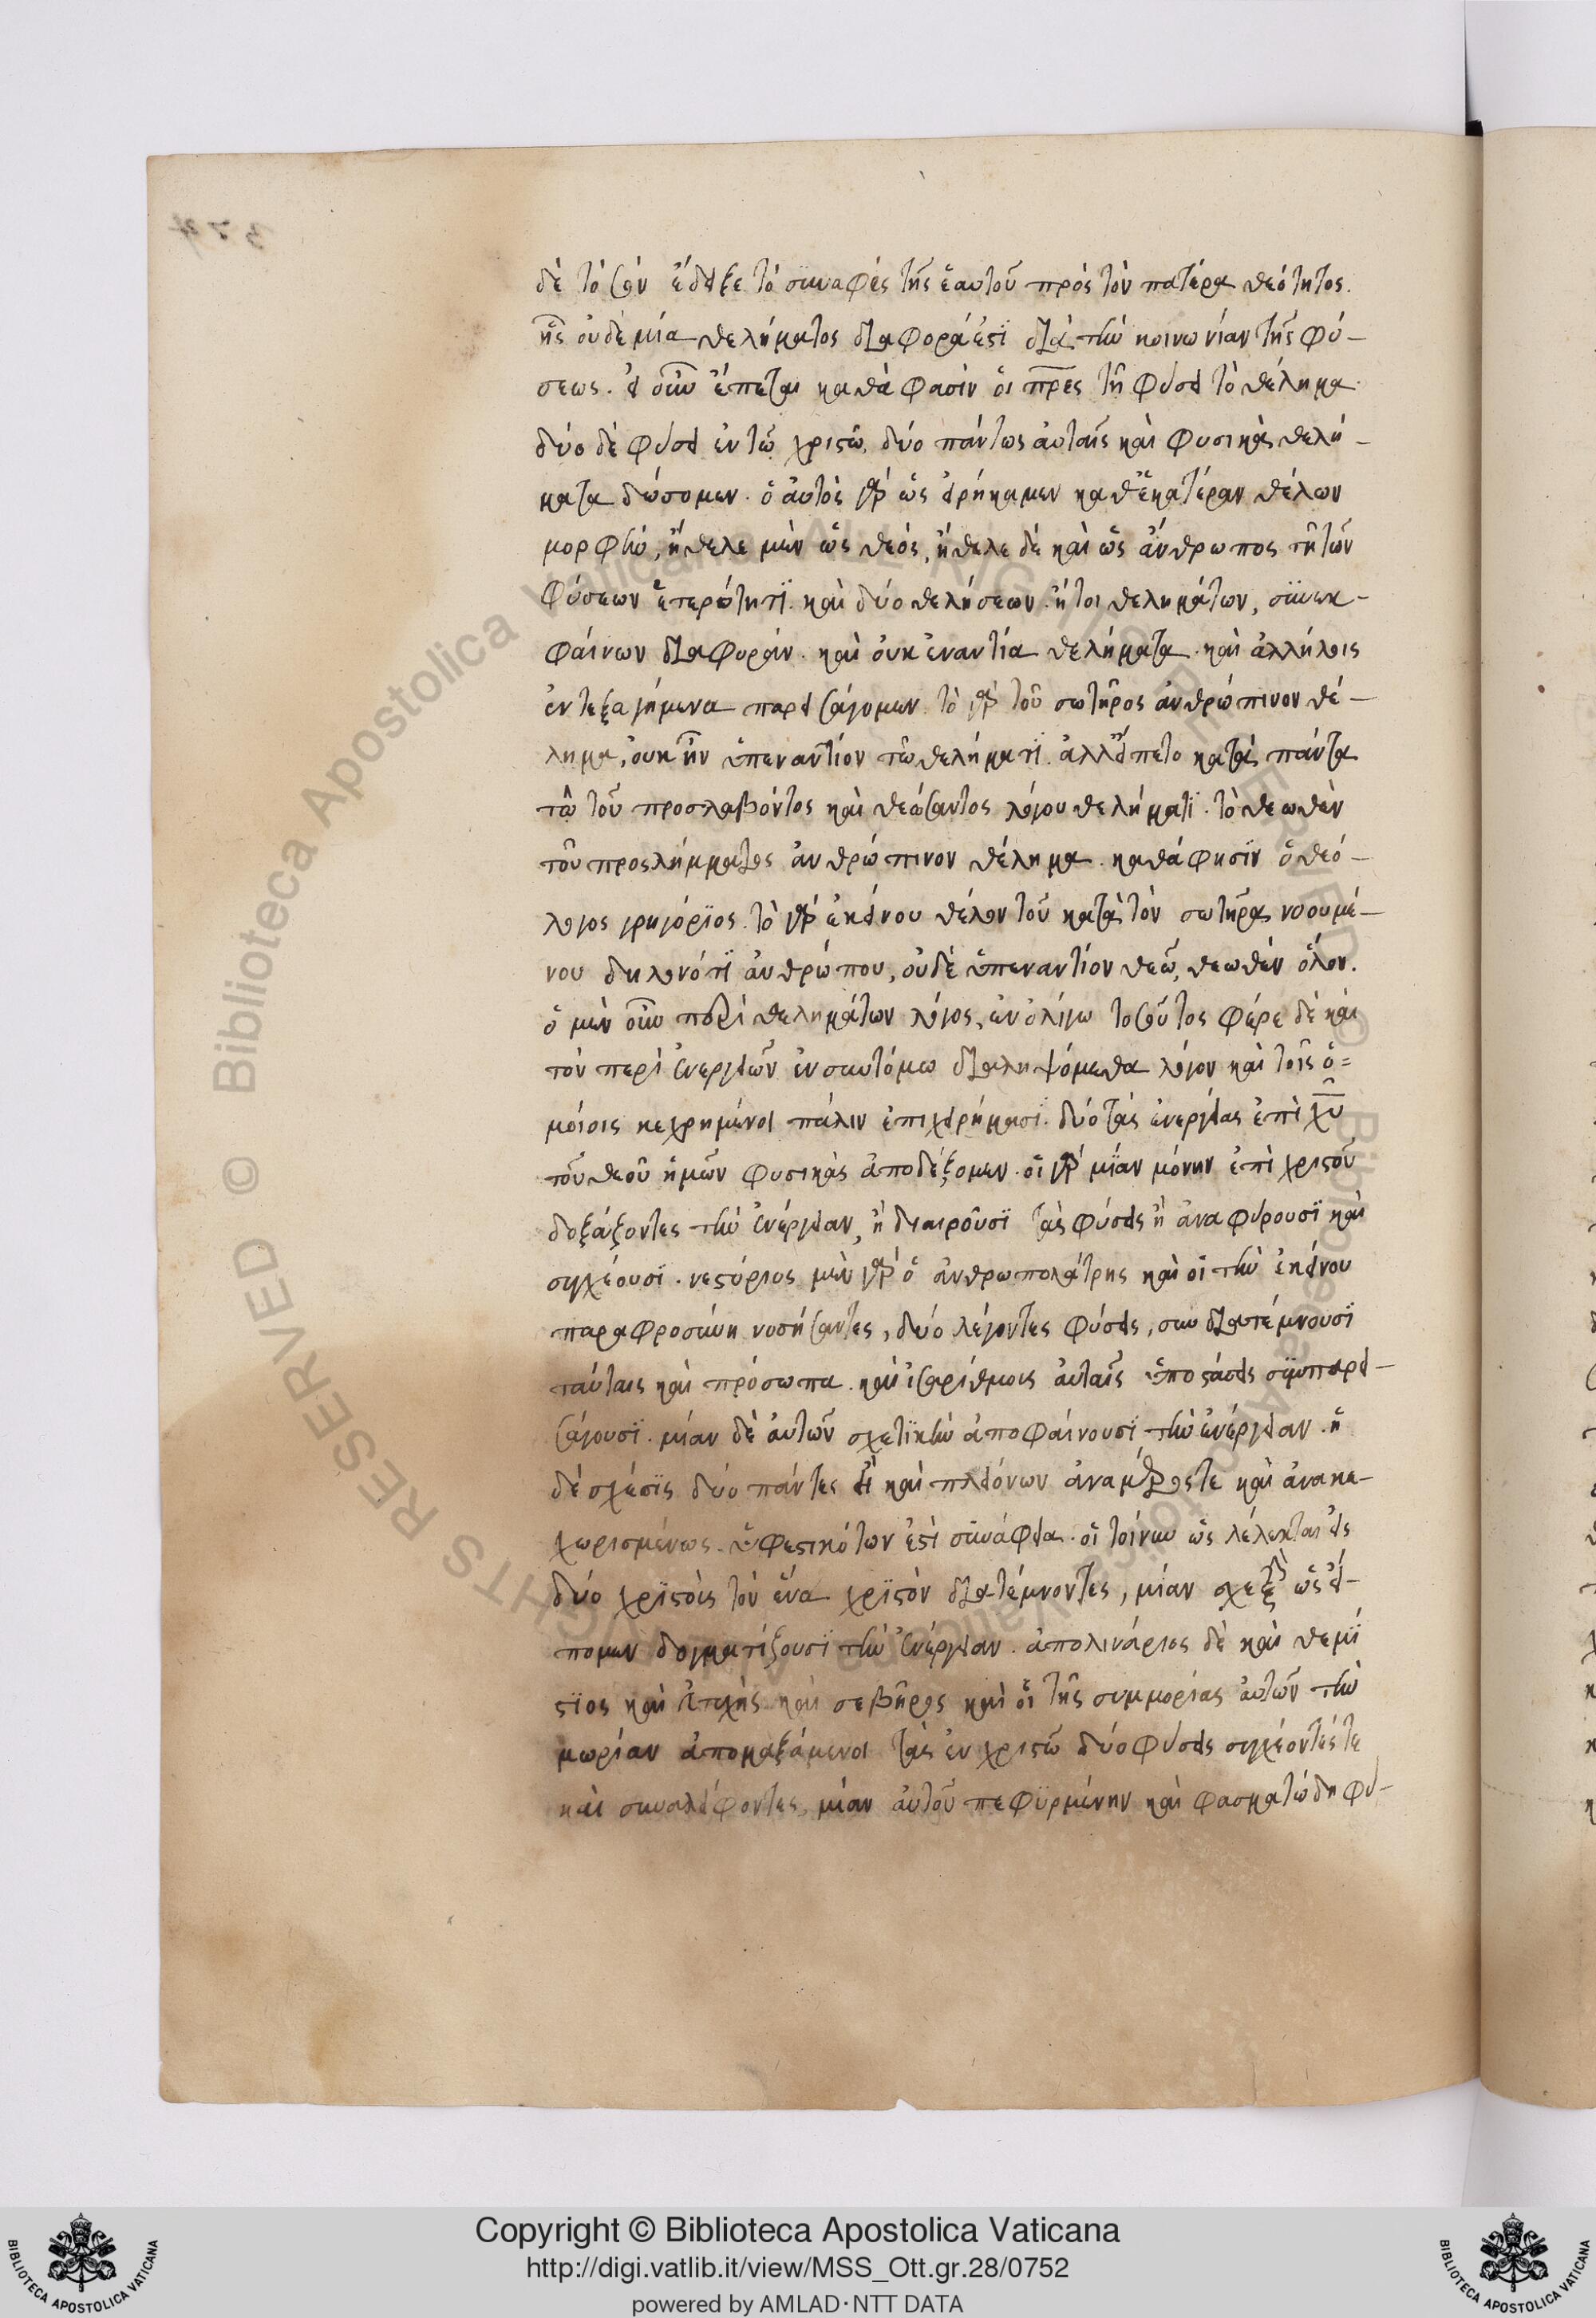 δὲ τὸ σὸν ἔδειξε τὸ συναφὲς τῆς ἑαυτοῦ πρὸς τὸν πατέρα θεότητος.
ἧς οὐδεμία θελήματος διαφορά ἐστϊ διὰ τὴν κοινωνίαν τῆς φύ-
σεως. εἰ οὖν ἕπεται καθά φασὶν οἱ πρες τῆ φύσει τὸ θέλημα.
δύο δὲ φύσει ἐν τῶ χριστῶ, δύο πάντως αὐταῖς καὶ φυσικὰ θελή-
ματα δώσομεν. ὁ αὐτὸς γὰρ ὡς εἰρήκαμεν καθ' ἑκατέραν θέλων
μορφὴν, ἤθελε μὲν ὡς θεός, ἤθελε δὲ καὶ ὡς ἄνθρωπος τῆ τῶν
φύσεων ἑτερότητϊ. καὶ δύο θελήσεων ἤτοι θελημάτων, συνεκ-
φαίνων διαφοράν. καὶ οὐκ ἐναντία θελήματα καὶ ἀλλήλοις
ἀντεξαγόμενα παρεισάγομεν. τὸ γὰρ τοῦ σωτῆρος ἀνθρώπινον θέ-
λημα, οὐκ ἦν ὑπεναντίον τῶ θελήματϊ. ἀλλ' εἵπετο κατὰ πάντα
τῶ τοῦ προσλαβόντος καὶ θεώσαντος λόγου θελήματϊ. τὸ θεωθὲν
τοῦ προσλήμματος ἀνθρώπινον θέλημα. καθά φησϊν ὁ θεό-
λογος γρηγόρϊος. τὸ γὰρ ἐκείνου θέλον τοῦ κατὰ τὸν σωτῆρα νοουμέ-
νου δηλονότϊ ἀνθρώπου, οὐδὲ ὑπεναντίον θεῶ, θεωθὲν ὅλον.
ὁ μὲν οὖν περὶ θελημάτων λόγος, ἐν ὀλίγω τοσοῦτος φέρε δὲ καὶ
τὸν περὶ ἐνεργειῶν ἐν συντόμω διαληψόμεθα λόγον καὶ τοῖς ὁ=
μοίοις κεχρημένοι πάλιν ἐπιχειρήμασϊ. δύο τὰς ἐνεργείας ἐπὶ χυ
τοῦ θεοῦ ἡμῶν φυσικὰς ἀποδείξομεν. οἱ γὰρ μίαν μόνην ἐπὶ χριστοῦ
δοξάζοντες τὴν ἐνέργειαν, ἢ διαιροῦσϊ τὰς φύσεις ἢ ἀναφύρουσϊ καὶ
συγχέουσϊ. νεστόριος μὲν γὰρ ὁ ἀνθρωπολάτρης καὶ οἱ τὴν ἐκείνου
παραφροσύνη νοσήσαντες, δύο λέγοντες φύσεις, συν διατέμνουσϊ
ταύταις καὶ πρόσωπα. καὶ ἰσαρίθμοις αὐταῖς ὑποστάσεις συμπαρει-
σάγουσϊ. μίαν δὲ αὐτῶν σχετϊκὴν ἀποφαίνουσϊ τὴν ἐνέργειαν. ἡ
δὲ σχέσϊς δύο πάντες ἢ καὶ πλειόνων ἀναμέρος τε καὶ ἀνακε-
χωρισμένως ὑφεστικότων ἐστὶ συνάφεια. οἱ τοίνυν ὡς λέλεκται εἰς
δύο χρϊστοὺς τὸν ἕνα χρϊστὸν διατέμνοντες, μίαν ὡς εἴ-
πομεν δογματίζουσϊ τὴν ἐνέργειαν. ἀπολινάριος δὲ καὶ θεμί
στϊος καὶ εὐτυχὴς καὶ σεβῆρος καὶ οἱ τῆς συμμορίας αὐτῶν τὴν
μωρίαν ἀπομαξάμενοι τὰς ἐν χριστῶ δύο φύσεις συγχέοντές τε
καὶ συναλείφοντες, μίαν αὐτοῦ πεφυρμένην καὶ φασματώδη φύ-
Copyright © Biblioteca Apostolica Vaticana
http://digi.vatlib.it/view/MSS_Ott.gr.28/0752
powered by AMLAD·NTT DATA